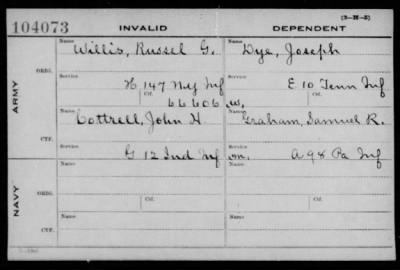 (3-H-5)
104073 INVALID DEPENDENT
Name Willis, Russel G. Name Dye, Joseph
ORIG.
Service H 147 N.Y Inf Service E 10 Tenn Inf
ARMY
Ctf. 66606 Ctf.
Name Cottrell, John H Name Graham, Samuel R.
Service G 12 Ind Inf Service A 98 Pa Inf
CTF.
Name Name
ORIG.
NAVY
Ctf. Ctf.
Name Name
CTF.